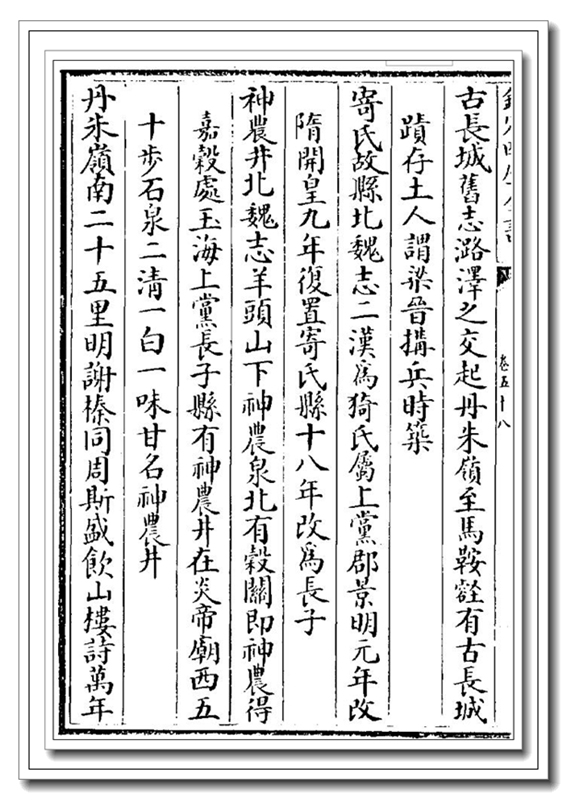 卷五十八
古長城舊志潞澤之交起丹朱嶺至馬鞍壑有古長城
蹟存土人謂梁晉搆兵時築
寄氏故縣北魏志二漢為猗氏屬上黨郡景明元年改
隋開皇九年復置寄氏縣十八年改為長子
神農井北魏志羊頭山下神農泉北有穀關即神農得
嘉穀處玉海上黨長子縣有神農井在炎帝廟西五
十步石泉二清一白一味甘名神農井
丹朱嶺南二十五里明謝榛同周斯盛飲山樓詩萬年